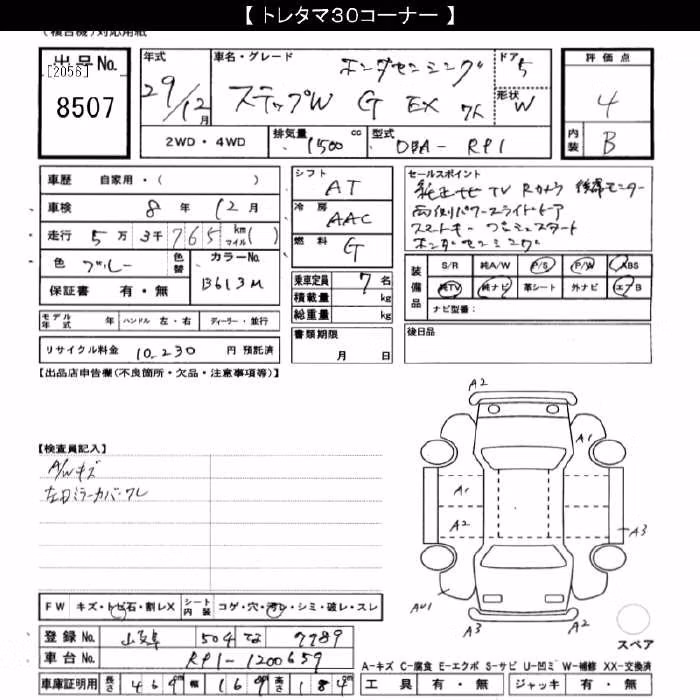 【 トレタマ30コーナー 】
(複合機)対応用紙
出品No.
[2056]
8507
年式
29/12月
車名・グレード
ホンダセンシング
ステップW G EX 7人
ドア
5
形状
W
評価点
4
内装 B
2WD・4WD
排気量 1500 cc
型式 DBA- RP1
車歴 自家用・( )
車検 8年 12月
走行 5万3千765 km マイル( )
色 ブルー 色替 カラーNo. B613M
保証書 有・無
シフト AT
冷房 AAC
燃料 G
乗車定員 7名
積載量 kg
総重量 kg
書類期限
月 日
セールスポイント
純正ナビ TV Rカメラ 後席モニター
両側パワースライドドア
スマートキー プッシュスタート
ホンダセンシング
装備品
S/R 純A/W P/S P/W ABS
純TV 純ナビ 革シート 外ナビ エアB
ナビ型番:
後日品
モデル年式 年 ハンドル 左・右 ディーラー・並行
リサイクル料金 10,230 円 預託済
【出品店申告欄(不良箇所・欠品・注意事項等)】
【検査員記入】
A/Wキズ
左ドミラーカバーワレ
A2
A1
A1
A2
A3
AU1
A3
A2
スペア
FW キズ・トビ石・割レX シート内装 コゲ・穴・汚レ・シミ・破レ・スレ
登録No. 504 7789
車台No. RP1-1200659
車庫証明用 長さ 469 幅 169 高さ 184
A-キズ C-腐食 E-エクボ S-サビ U-凹ミ W-補修 XX-交換済
工具 有・無 ジャッキ 有・無